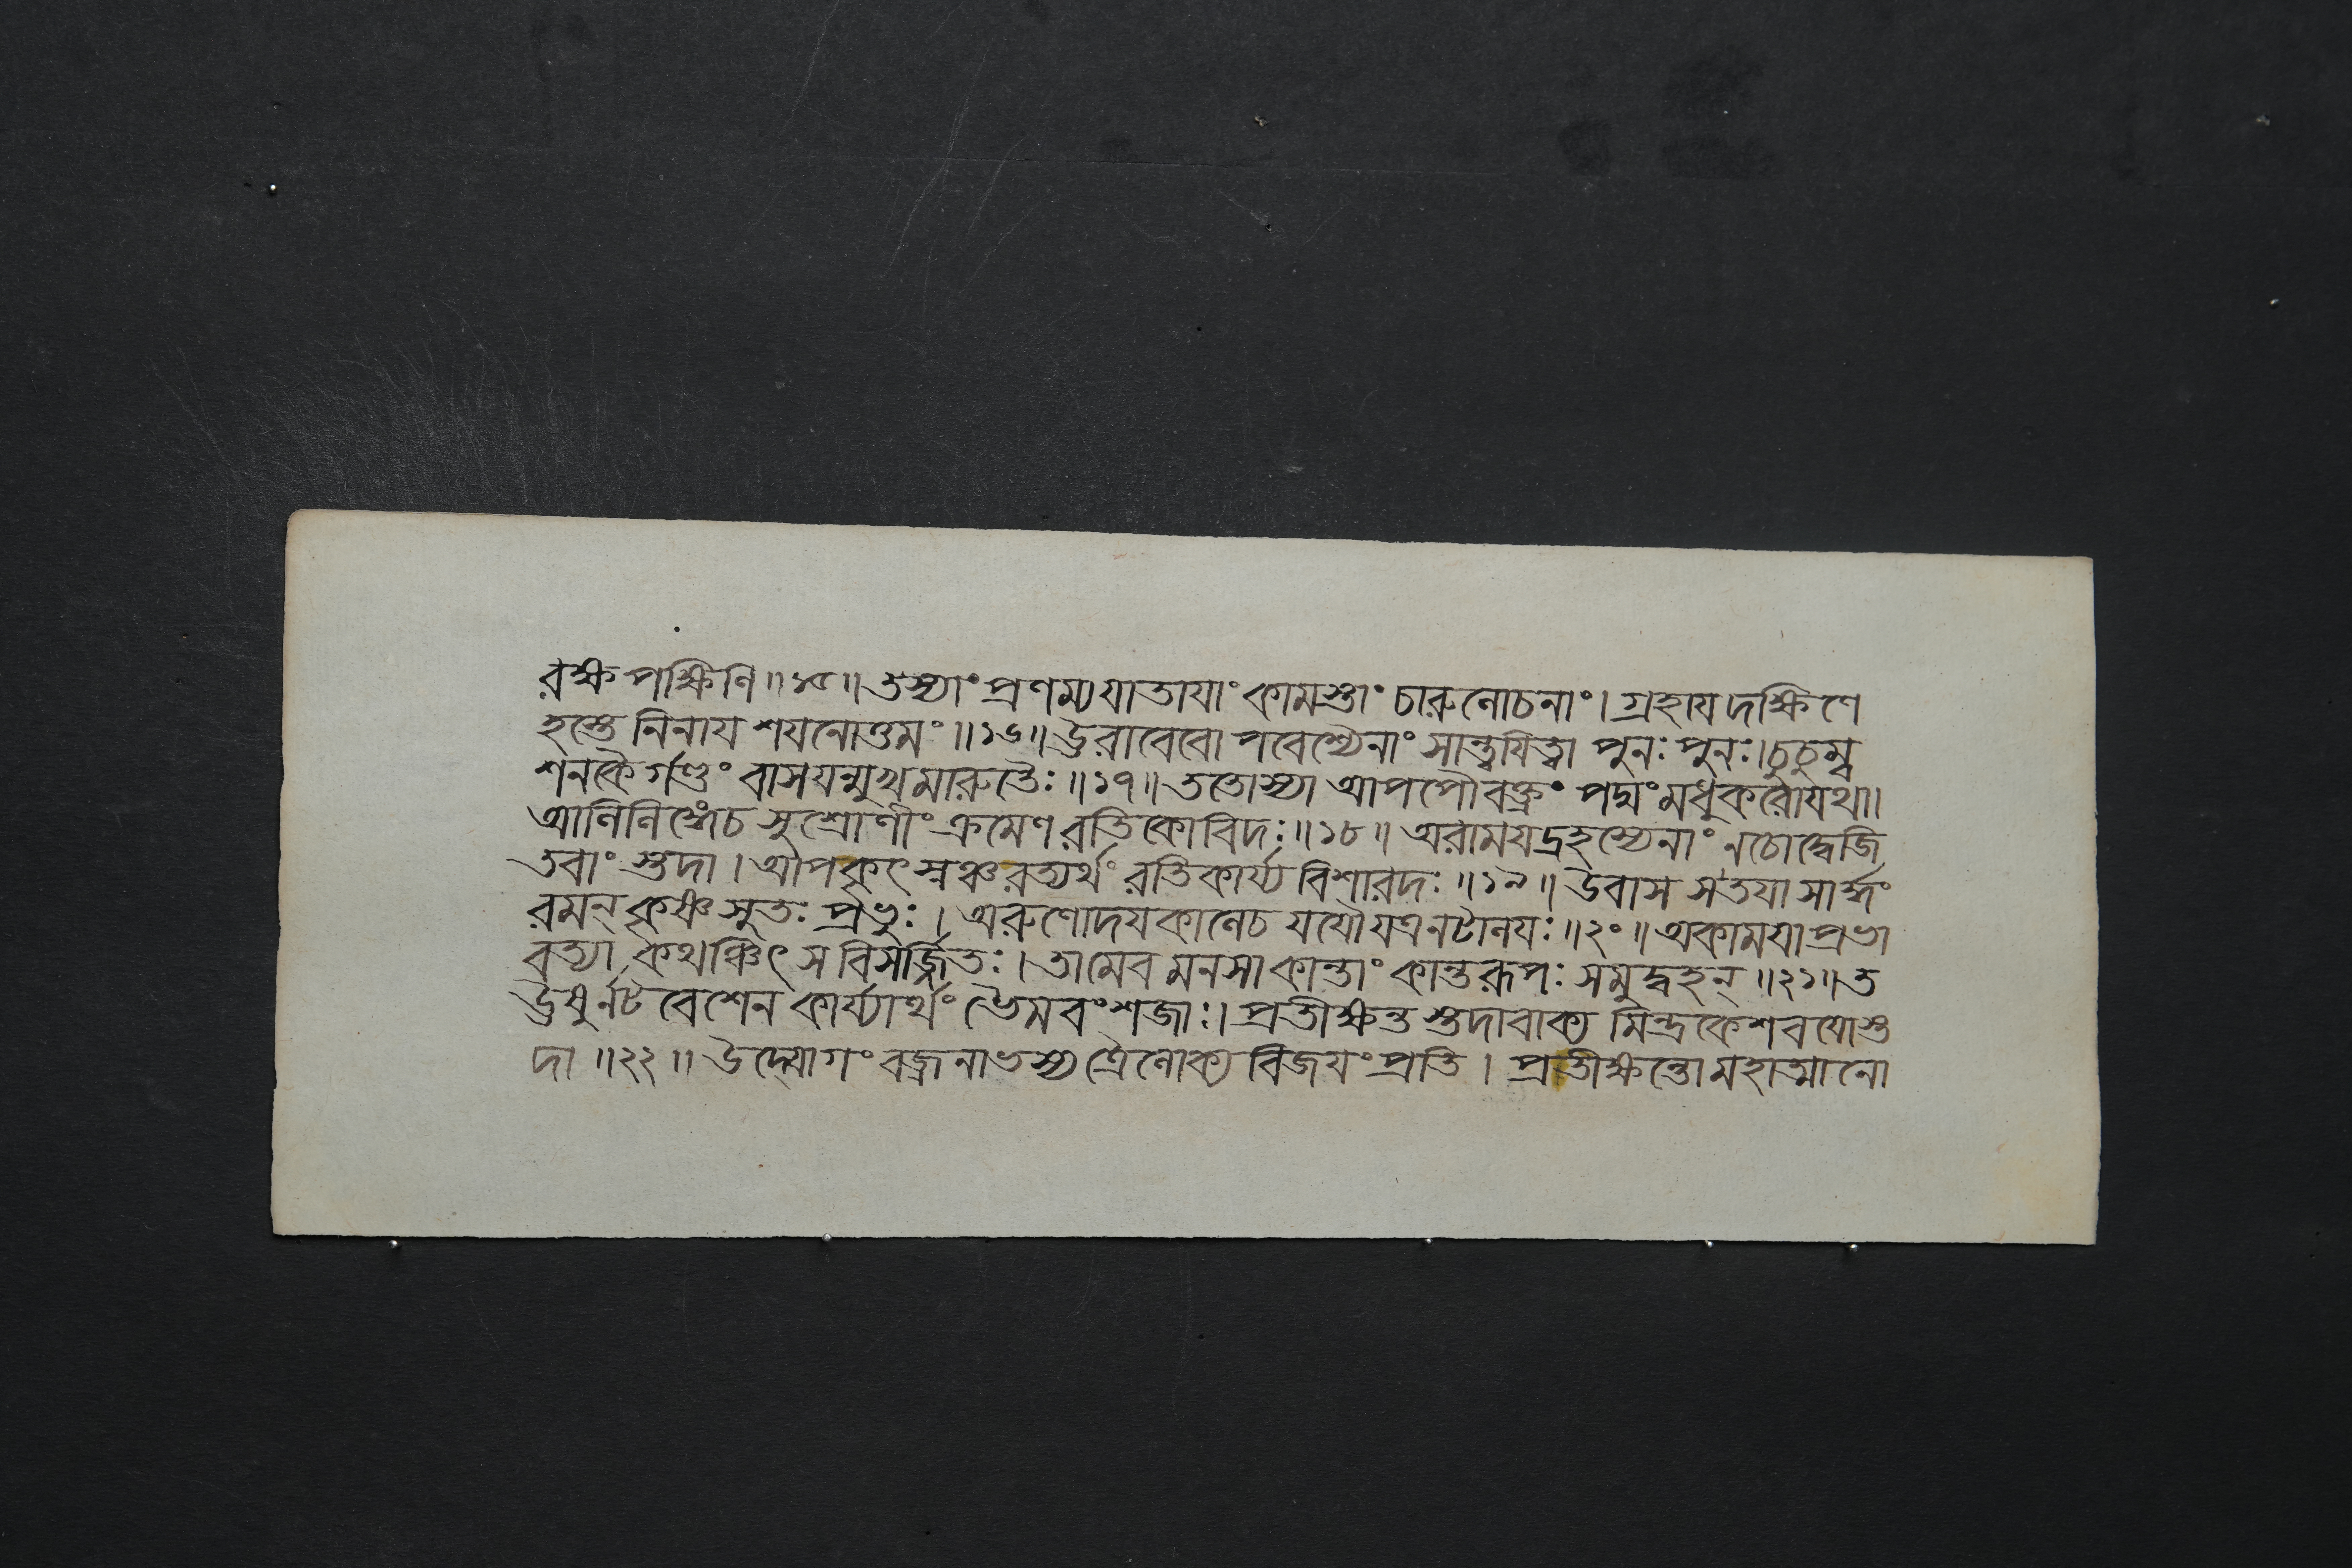 রক্ষ পক্ষিণি॥১৫॥ তস্যাং প্রণম্য যাতাযাং কামস্তাং চারুলোচনাং। গ্রহায দক্ষিণে
হস্তে নিনায শযনোত্তমং॥১৬॥ উরাবেবোপবেশ্যৈনাং সান্ত্বযিত্বা পুনঃ পুনঃ। চুচুম্ব
শনকৈর্গণ্ডং বাসযন্মুখমারুতৈঃ॥১৭॥ ততোস্যা আপপৌ বক্ত্রং পদ্মং মধুকরো যথা।
আলিলিঙ্গে চ সুশ্রোণীং ক্রমেণ রতিকোবিদঃ॥১৮॥ অরাময়দ্রহস্যেনাং নচোদ্বেজি
তবাংস্তদা। অপকৃৎস্নঞ্চ রত্যর্থং রতিকার্য্য বিশারদঃ॥১৯॥ উবাস স তযা সার্দ্ধং
রমন্ কৃষ্ণসুতঃ প্রভুঃ। অরুণোদযকালেচ যযৌ যত্র নটালযঃ॥২০॥ অকামযা প্রভা
বত্যা কথঞ্চিৎ স বিসর্জ্জিতঃ। তামেব মনসা কান্তাং কান্তরূপঃ সমুদ্বহন্॥২১॥ ত
ঊষুর্নটবেশেন কার্য্যার্থং ভৈমবংশজাঃ। প্রতীক্ষন্তস্তদাবাক্যমিন্দ্রকেশবযোস্ত
দা॥২২॥ উদ্যোগং বজ্রনাভস্য ত্রৈলোক্য বিজযং প্রতি। প্রতীক্ষন্তো মহাত্মানো